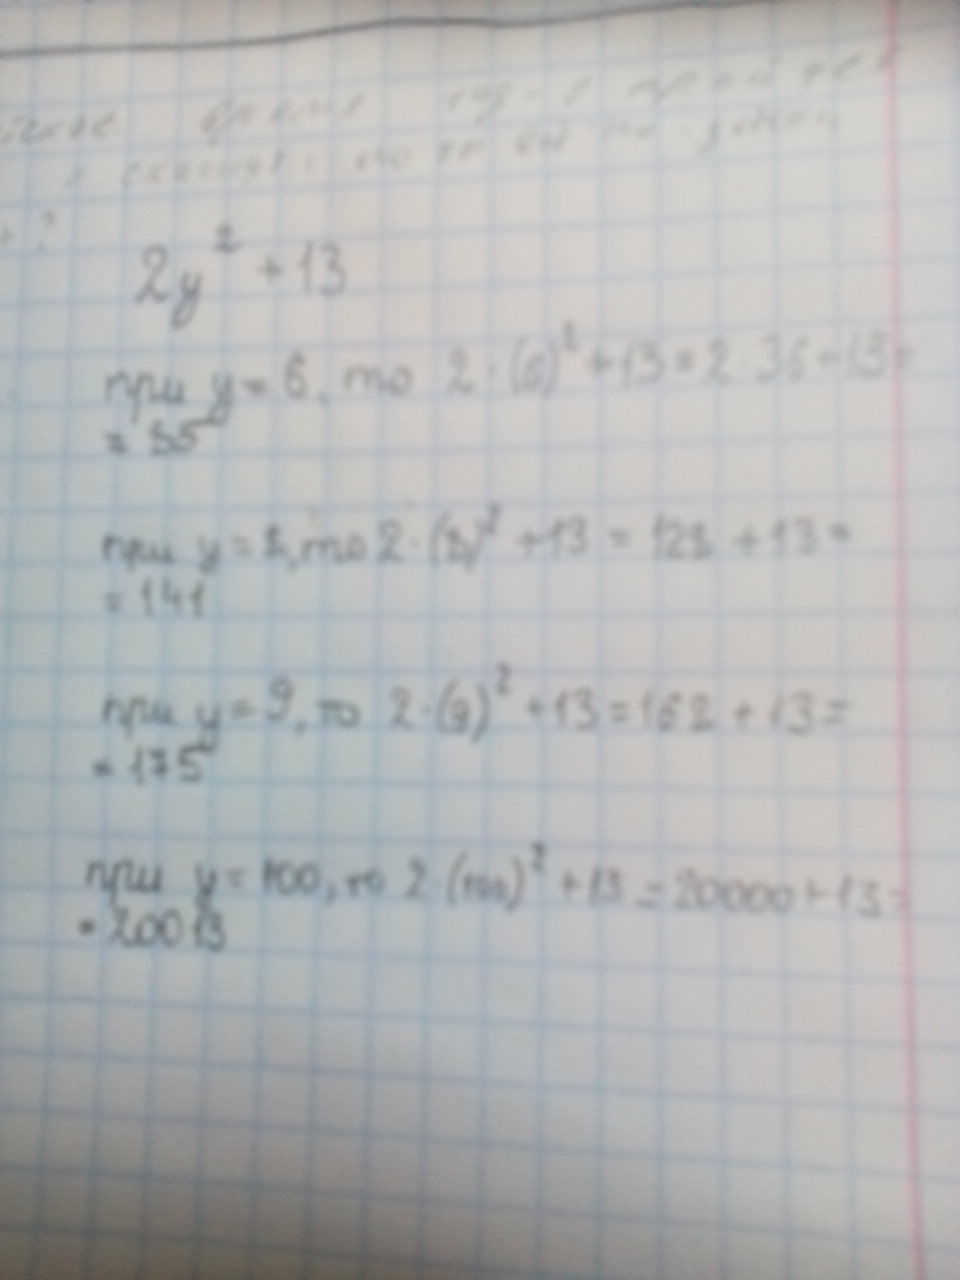 время
2y² + 13
при y = 6, то 2·(6)² + 13 = 2·36 + 13 =
= 85
при y = 8, то 2·(8)² + 13 = 128 + 13 =
= 141
при y = 9, то 2·(9)² + 13 = 162 + 13 =
= 175
при y = 100, то 2 (100)² + 13 = 20000 + 13 =
= 20013